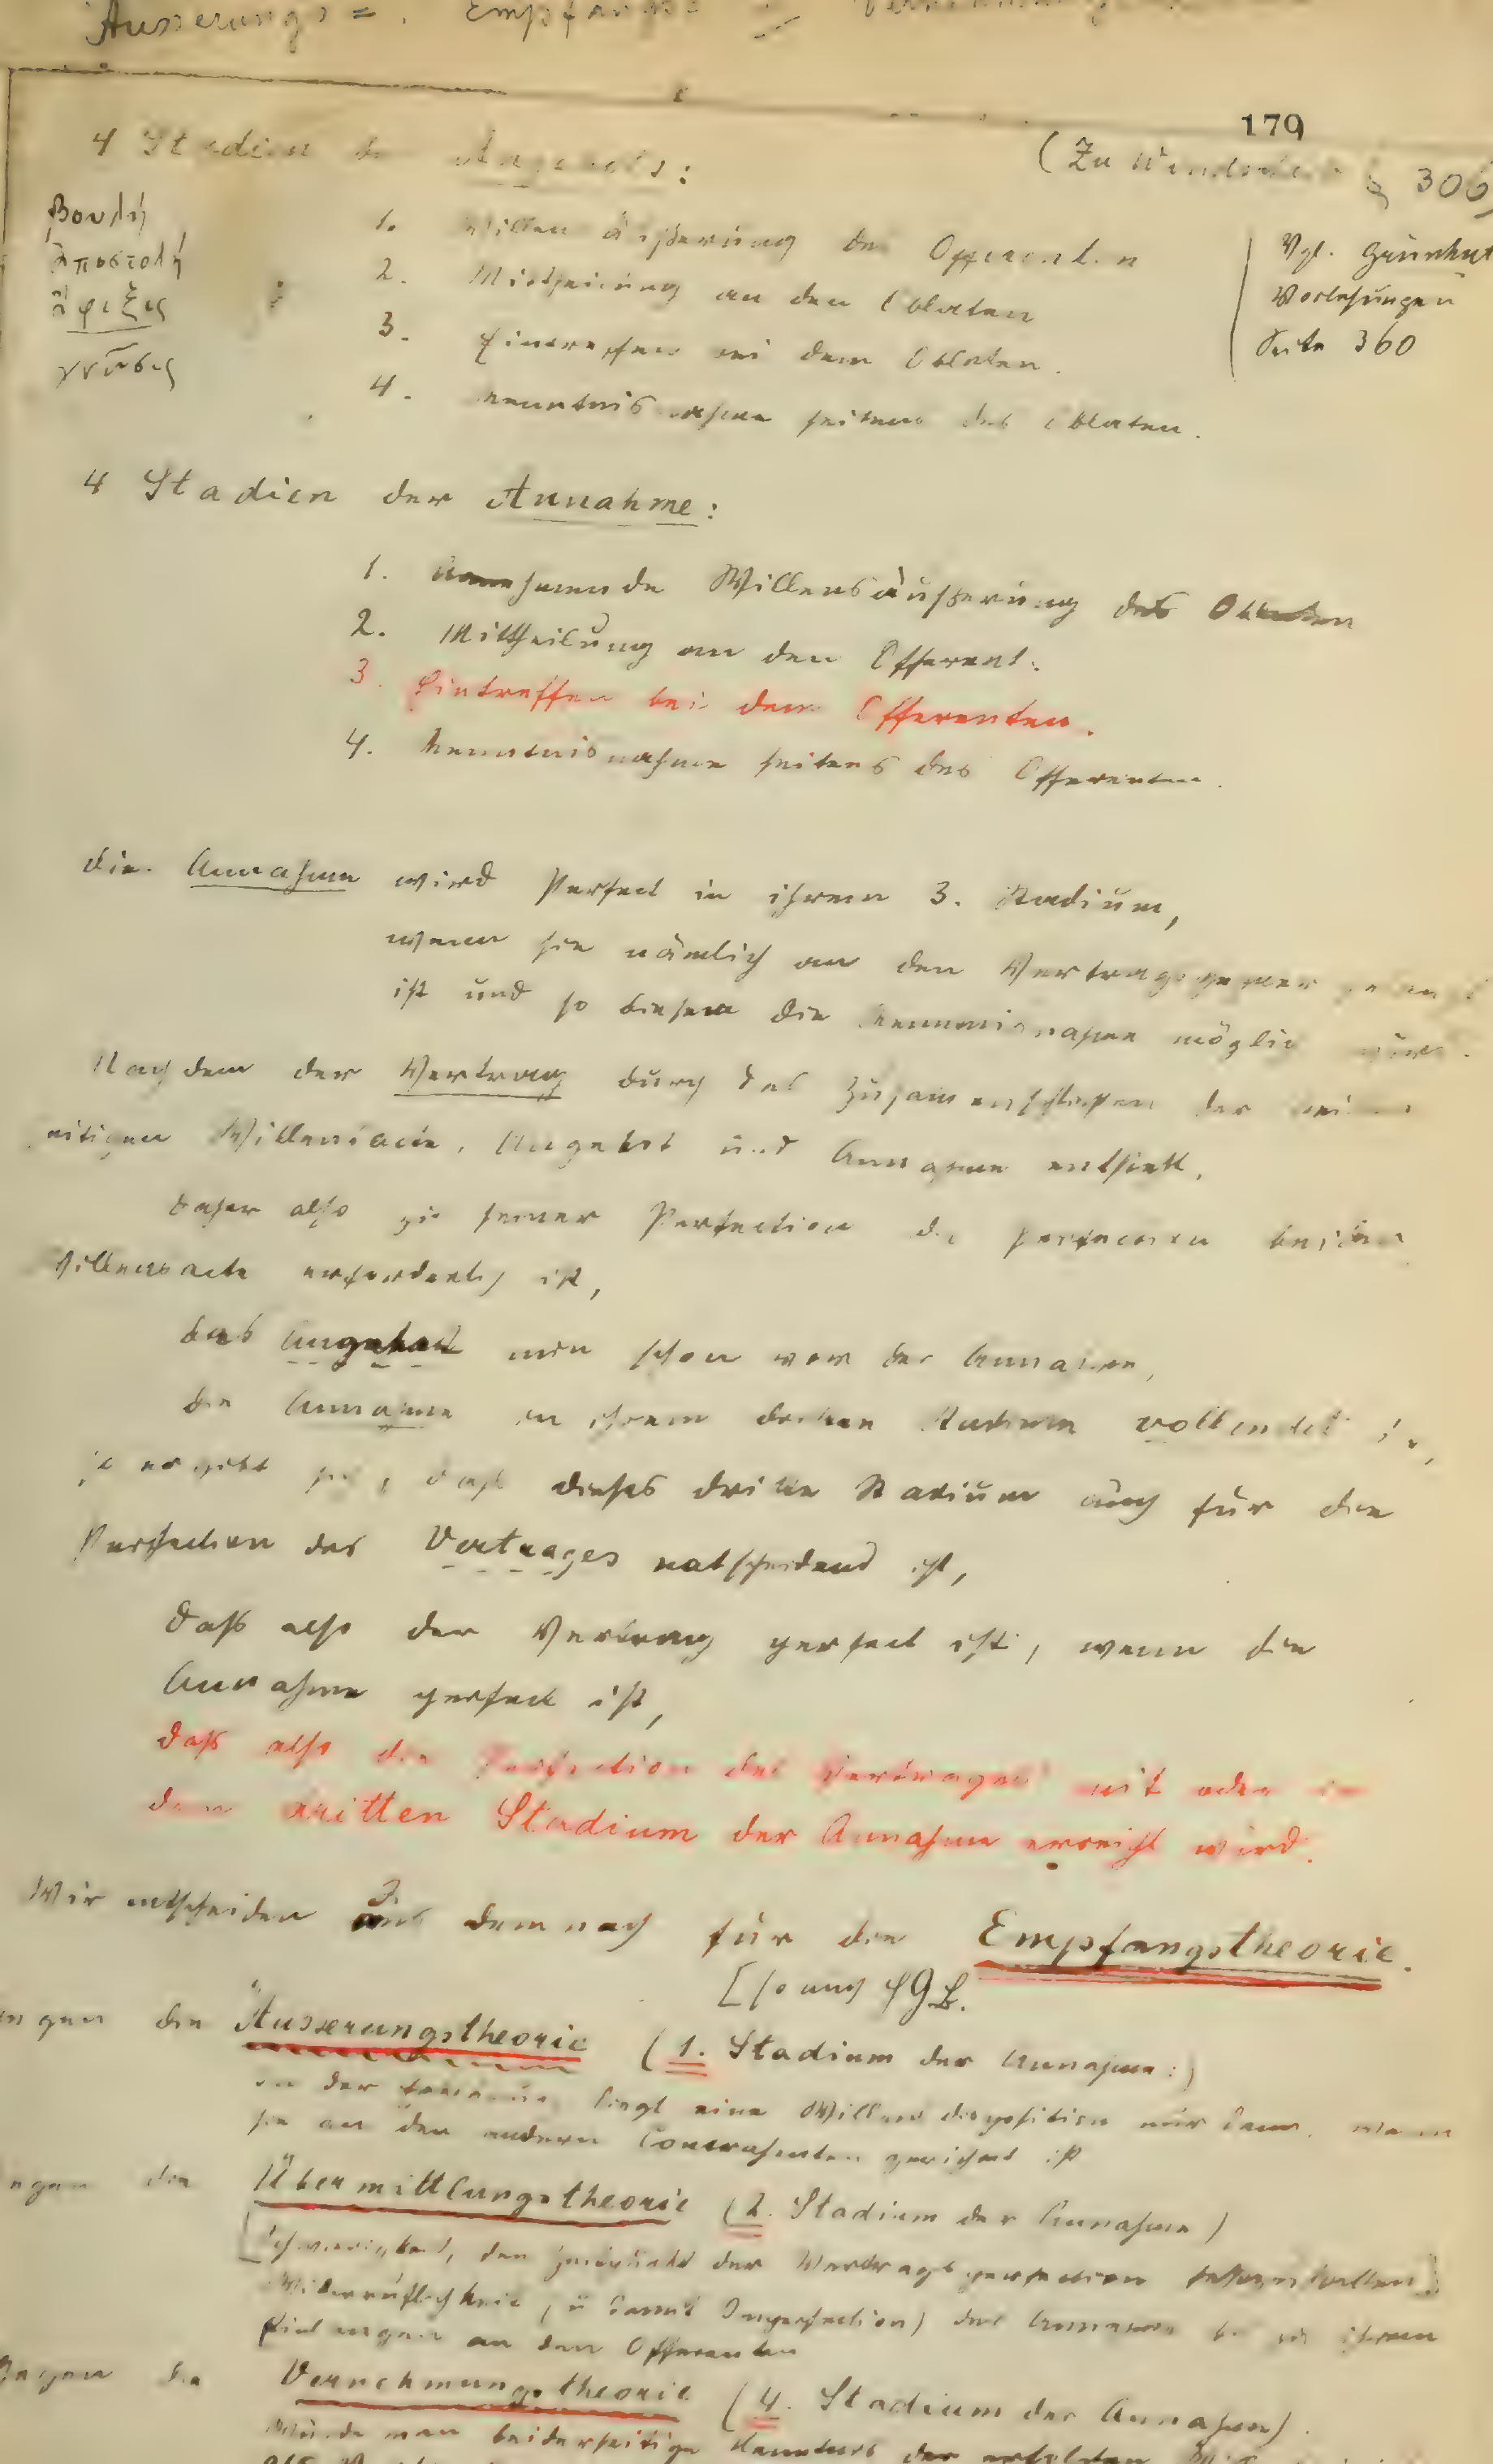 Äusserungs=, Empfangs
179
4 Stadien des Angebots:
(Zu Windscheid § 306,
βουλή
ἀποστολή
ἄφιξις
γνῶσις
1. Willensäußerung des Offerenten
2. Mittheilung an den Oblaten
3. Eintreffen bei dem Oblaten.
4. Kenntnisnahme seitens des Oblaten.
Vgl. Grünhut
Vorlesungen
Seite 360
4 Stadien der Annahme:
1. annehmende Willensäußerung des Oblaten
2. Mittheilung an den Offerent.
3. Eintreffen bei dem Offerenten.
4. Kenntnisnahme seitens des Offerenten.
die Annahme wird perfect in ihrem 3. Stadium,
wenn sie nämlich an den Vertragsgegner
ist und so diesem die Kenntnisnahme möglich
Nachdem der Vertrag durch das Zusammenschließen der
eitigen Willensacte, Angebot und Annahme entsteht,
daher also zu seiner Perfection die Perfection beider
Willensacte erforderlich ist,
das Angebot nun schon vor der Annahme,
die Annahme in ihrem dritten Stadium vollendet ist,
so ergibt sich, daß dieses dritte Stadium auch für die
Perfection des Vertrages entscheidend ist,
daß also der Vertrag perfect ist, wenn die
Annahme perfect ist,
daß also die Perfection des Vertrages mit oder in
dem dritten Stadium der Annahme erreicht wird.
Wir entscheiden uns demnach für die Empfangstheorie.
[so auch HGB.
gegen die Äusserungstheorie (1. Stadium der Annahme:)
in der liegt eine Willensdisposition nur dann, wenn
sie an den andern Contrahenten gerichtet ist
gegen die Übermittlungstheorie (2. Stadium der Annahme)
[Schwierigkeit, den Zeitpunkt der Vertragsperfection festzustellen]
Widerruflichkeit (u damit Imperfection) der Annahme bis zu ihrem
Einlangen an den Offerenten
Gegen die Vernehmungstheorie (4. Stadium der Annahme).
Würde man beiderseitige Kenntnis der erfolgten